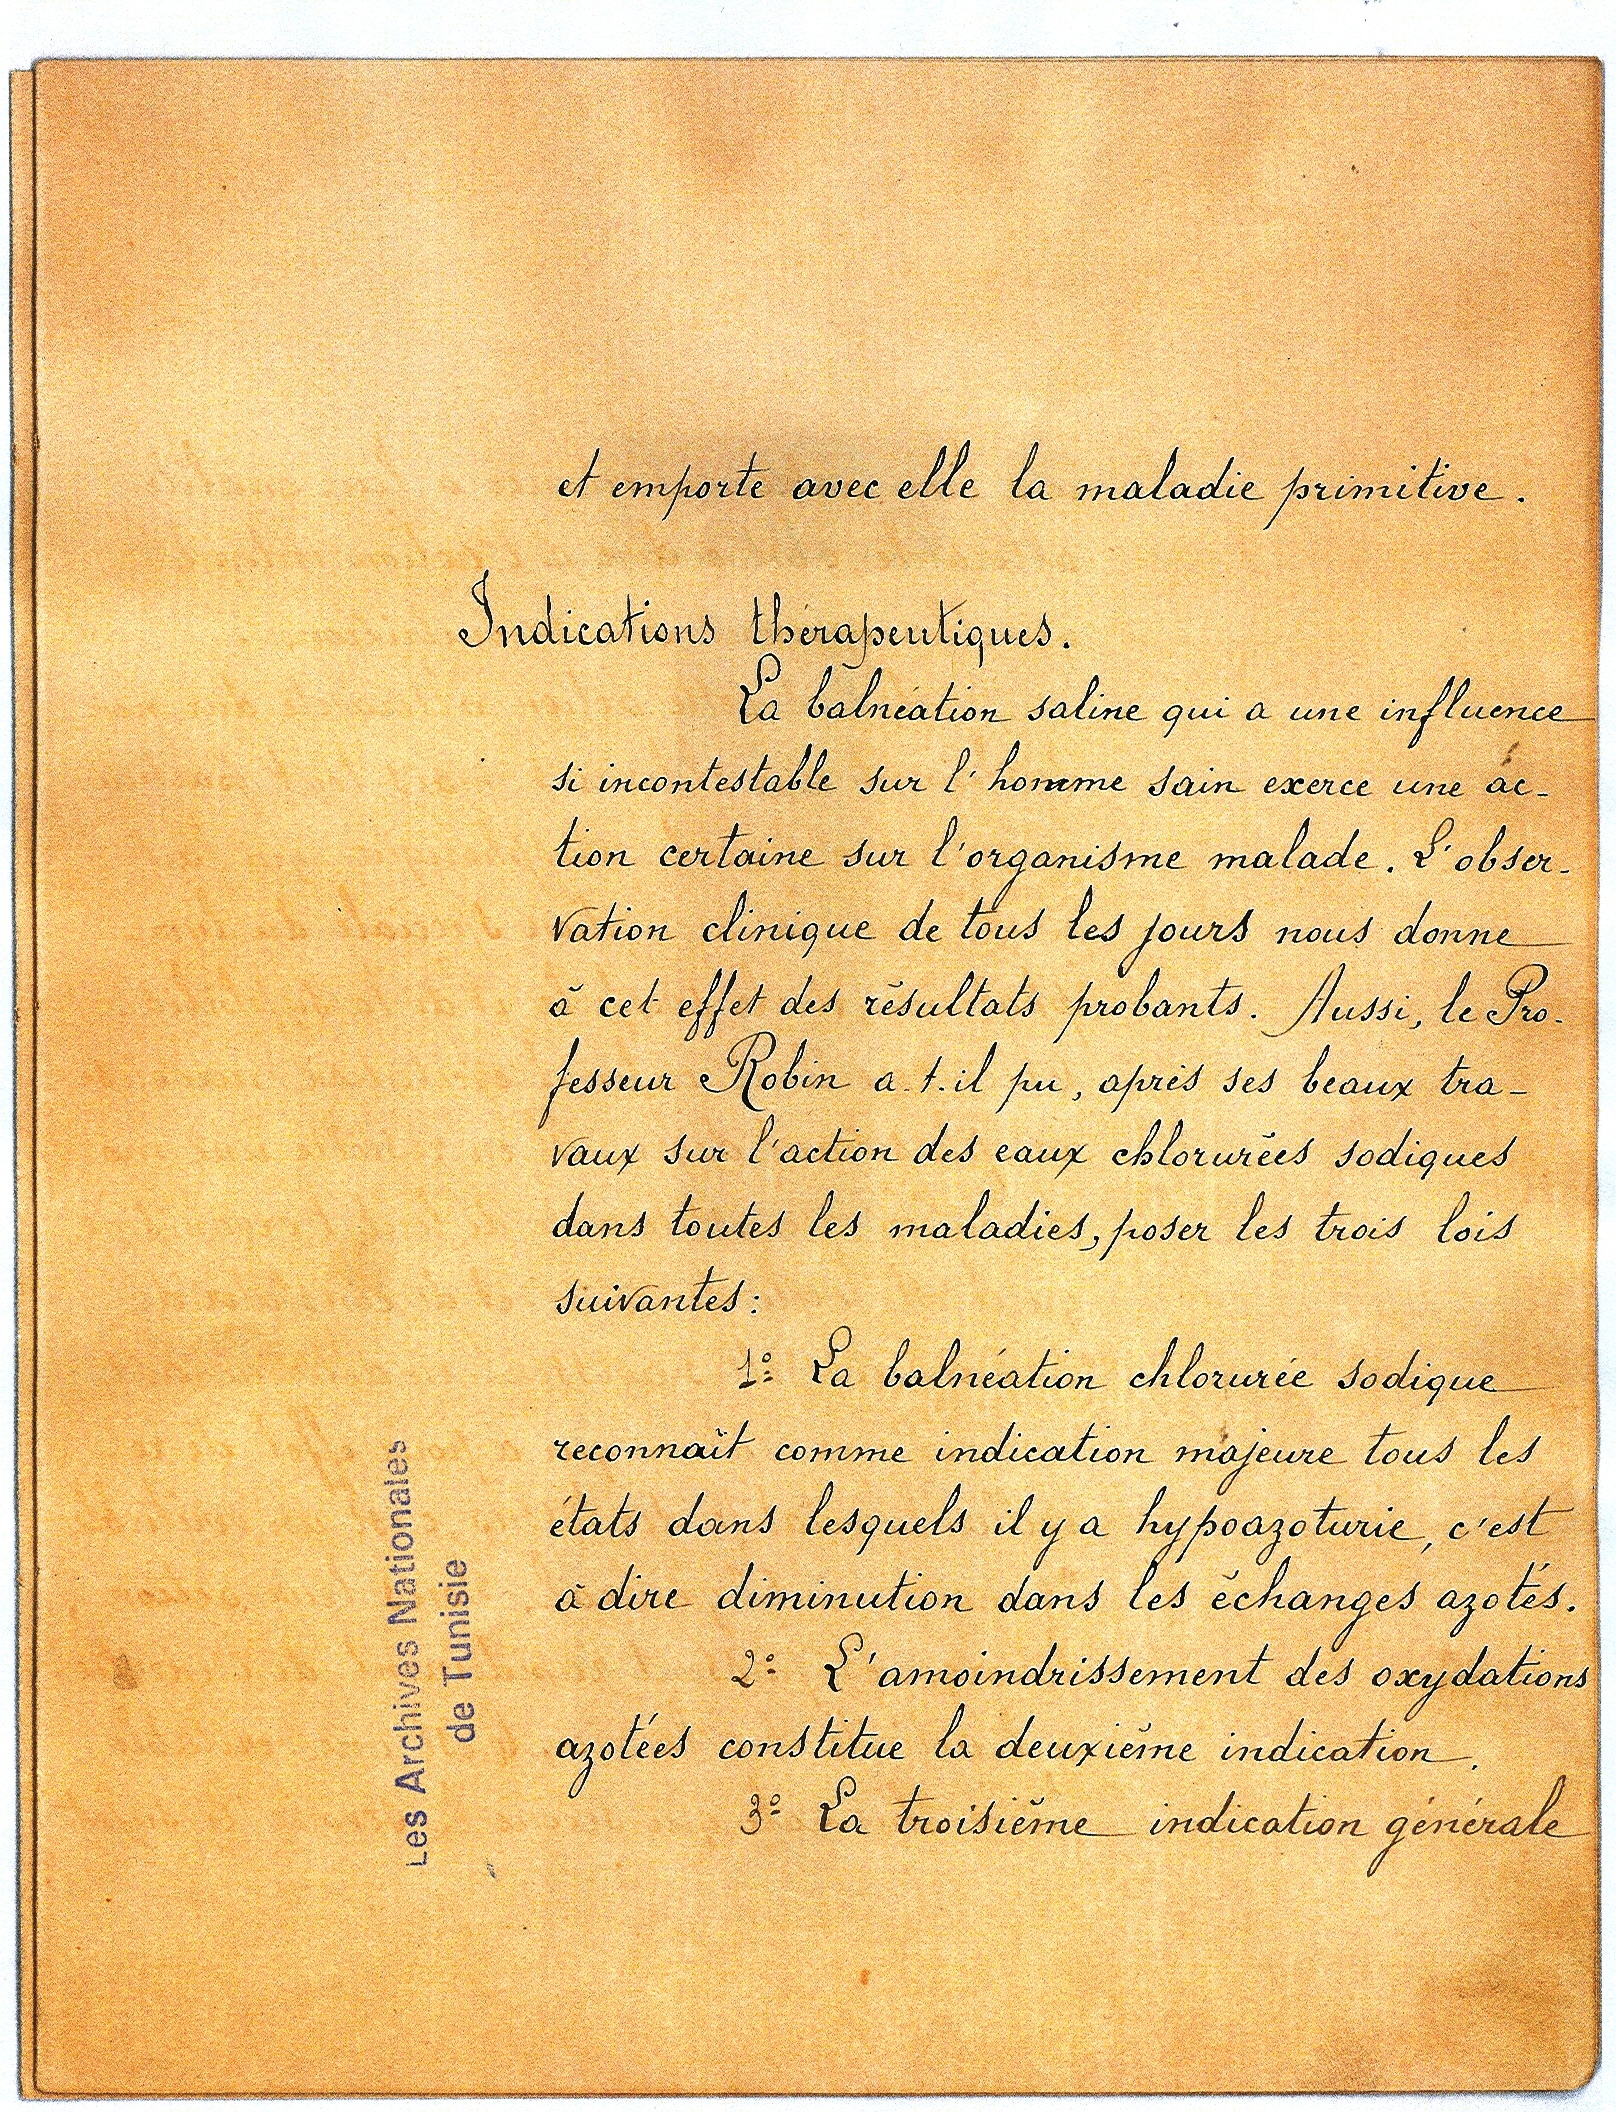 et emporte avec elle la maladie primitive.
Indications thérapeutiques.
La balnéation saline qui a une influence
si incontestable sur l'homme sain exerce une ac-
tion certaine sur l'organisme malade. L'obser-
vation clinique de tous les jours nous donne
à cet effet des résultats probants. Aussi, le Pro-
fesseur Robin a-t-il pu, après ses beaux tra-
vaux sur l'action des eaux chlorurées sodiques
dans toutes les maladies, poser les trois lois
suivantes:
1º La balnéation chlorurée sodique
reconnaît comme indication majeure tous les
états dans lesquels il y a hypoazoturie, c'est
à dire diminution dans les échanges azotés.
2º L'amoindrissement des oxydations
azotées constitue la deuxième indication.
3º La troisième indication générale
Les Archives Nationales
de Tunisie